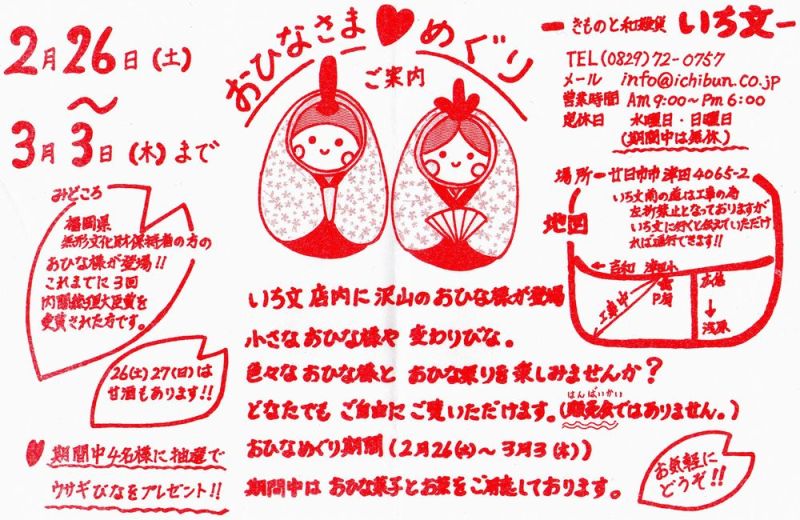 2月26日(土)
〜
3月3日(木)まで
おひなさま♥めぐり
ご案内
ーきものと和雑貨 いち文ー
TEL(0829)72-0757
メール info@ichibun.co.jp
営業時間 Am9:00〜Pm6:00
定休日 水曜日・日曜日
(期間中は無休)
場所ー廿日市市津田4065-2
地図
いち文前の道は工事の為
左折禁止となっておりますが
いち文に行くと伝えていただけ
れば通行できます!!
←吉和 津田小
工事中
P
広島
↓
浅原
みどころ
福岡県
無形文化財保持者の方の
おひな様が登場!!
これまでに3回
内閣総理大臣賞を
受賞された方です。
26(土)27(日)は
甘酒もあります!!
♥期間中4名様に抽選で
ウサギびなをプレゼント!!
いち文店内に沢山のおひな様が登場
小さなおひな様や変わりびな。
色々なおひな様とおひな祭りを楽しみませんか?
どなたでもご自由にご覧いただけます。(販売会ではありません。)
はんばいかい
おひなめぐり期間(2月26(土)〜3月3(木))
期間中はおひな菓子とお茶をご用意しております。
お気軽に
どうぞ!!